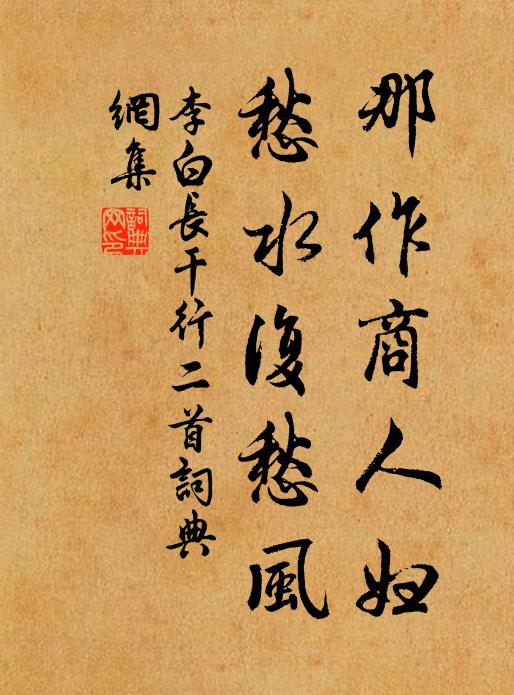 那作商人妇
愁水復愁風
李白長干行二首詞典
網集
詞典
网印